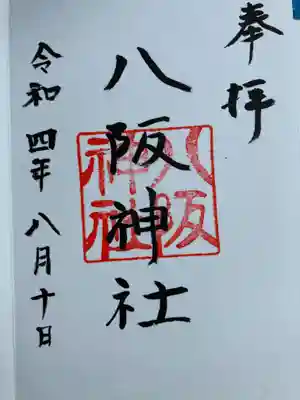 奉拝
八阪神社
八阪神社
令和四年八月十日